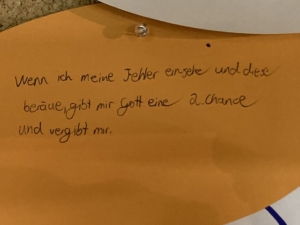 Wenn ich meine Fehler einsehe und diese
beräue, gibt mir Gott eine 2. Chance
und vergibt mir.